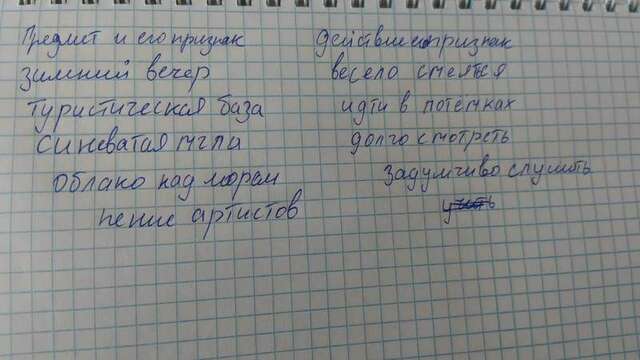 Предмет и его признак
зимний вечер
туристическая база
синеватая мгла
облако над морем
пение артистов
действие и признак
весело смеятся
идти в потёмках
долго смотреть
задумчиво слушать